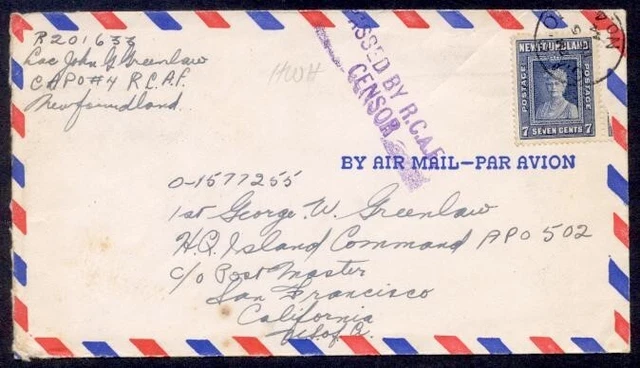 R201633
Lac John G Greenlaw
CAPO#4 R.C.A.F.
Newfoundland.
HWH
PASSED BY R.C.A.F.
CENSOR
NEWFOUNDLAND
POSTAGE
POSTAGE
7 SEVEN CENTS 7
BY AIR MAIL–PAR AVION
O-1577255
1st George. W. Greenlaw
H.Q. Island Command APO 502
c/o Post Master
San Francisco
California
U.S. of A.